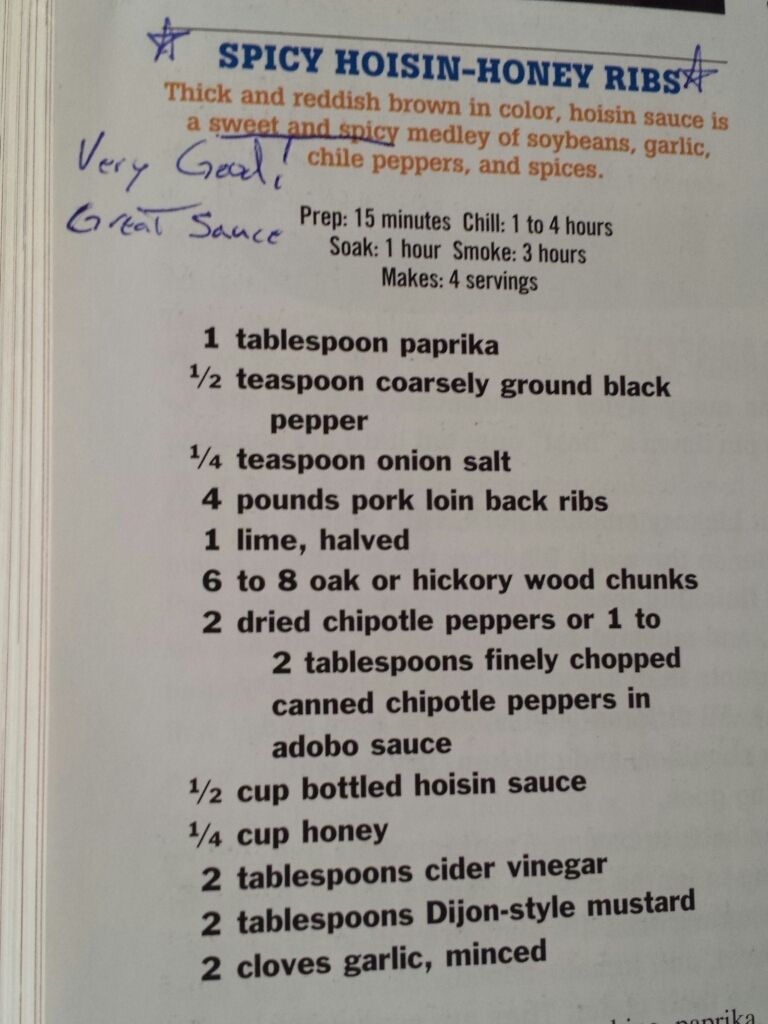 SPICY HOISIN-HONEY RIBS
Thick and reddish brown in color, hoisin sauce is
a sweet and spicy medley of soybeans, garlic,
chile peppers, and spices.
Very Good!
Great Sauce
Prep: 15 minutes Chill: 1 to 4 hours
Soak: 1 hour Smoke: 3 hours
Makes: 4 servings
1 tablespoon paprika
½ teaspoon coarsely ground black
pepper
¼ teaspoon onion salt
4 pounds pork loin back ribs
1 lime, halved
6 to 8 oak or hickory wood chunks
2 dried chipotle peppers or 1 to
2 tablespoons finely chopped
canned chipotle peppers in
adobo sauce
½ cup bottled hoisin sauce
¼ cup honey
2 tablespoons cider vinegar
2 tablespoons Dijon-style mustard
2 cloves garlic, minced
paprika